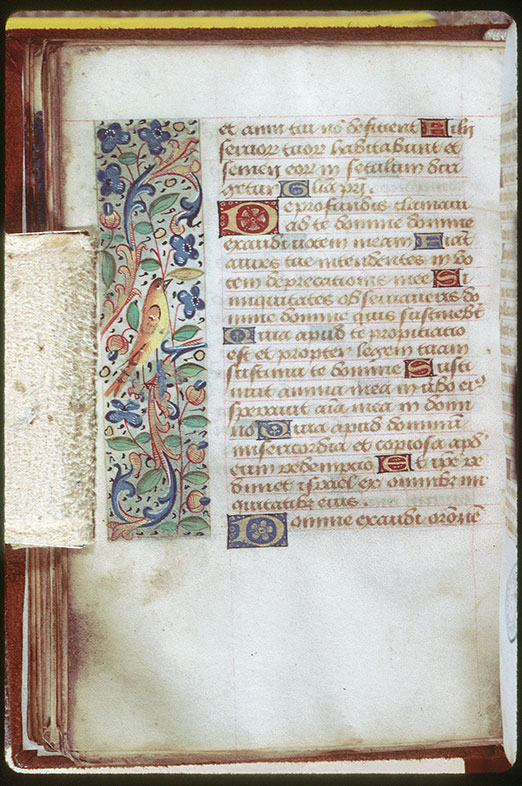 et anni tui nō deficient Filij
servor tuor habitabunt et
semen eor̄ in seculum diri
getur Glīa pri.
De profundis clamavi
ad te domine domine
exaudi vocem meam Fiāt
aures tue intendentes in vo
cem deprecationis mee Si
iniquitates observaveris do
mine domine quis sustinebit
Quia apud te propitiatio
est et propter legem tuam
sustinui te domine Susti
nuit anima mea in verbo eiꝰ
speravit aīa mea in domi
no Quia apud dominū
misericordia et copiosa apd'
eum redemptio Et ipse re
dimet israel ex omnibꝫ ini
quitatibꝫ eius.
Domine exaudi orōnē